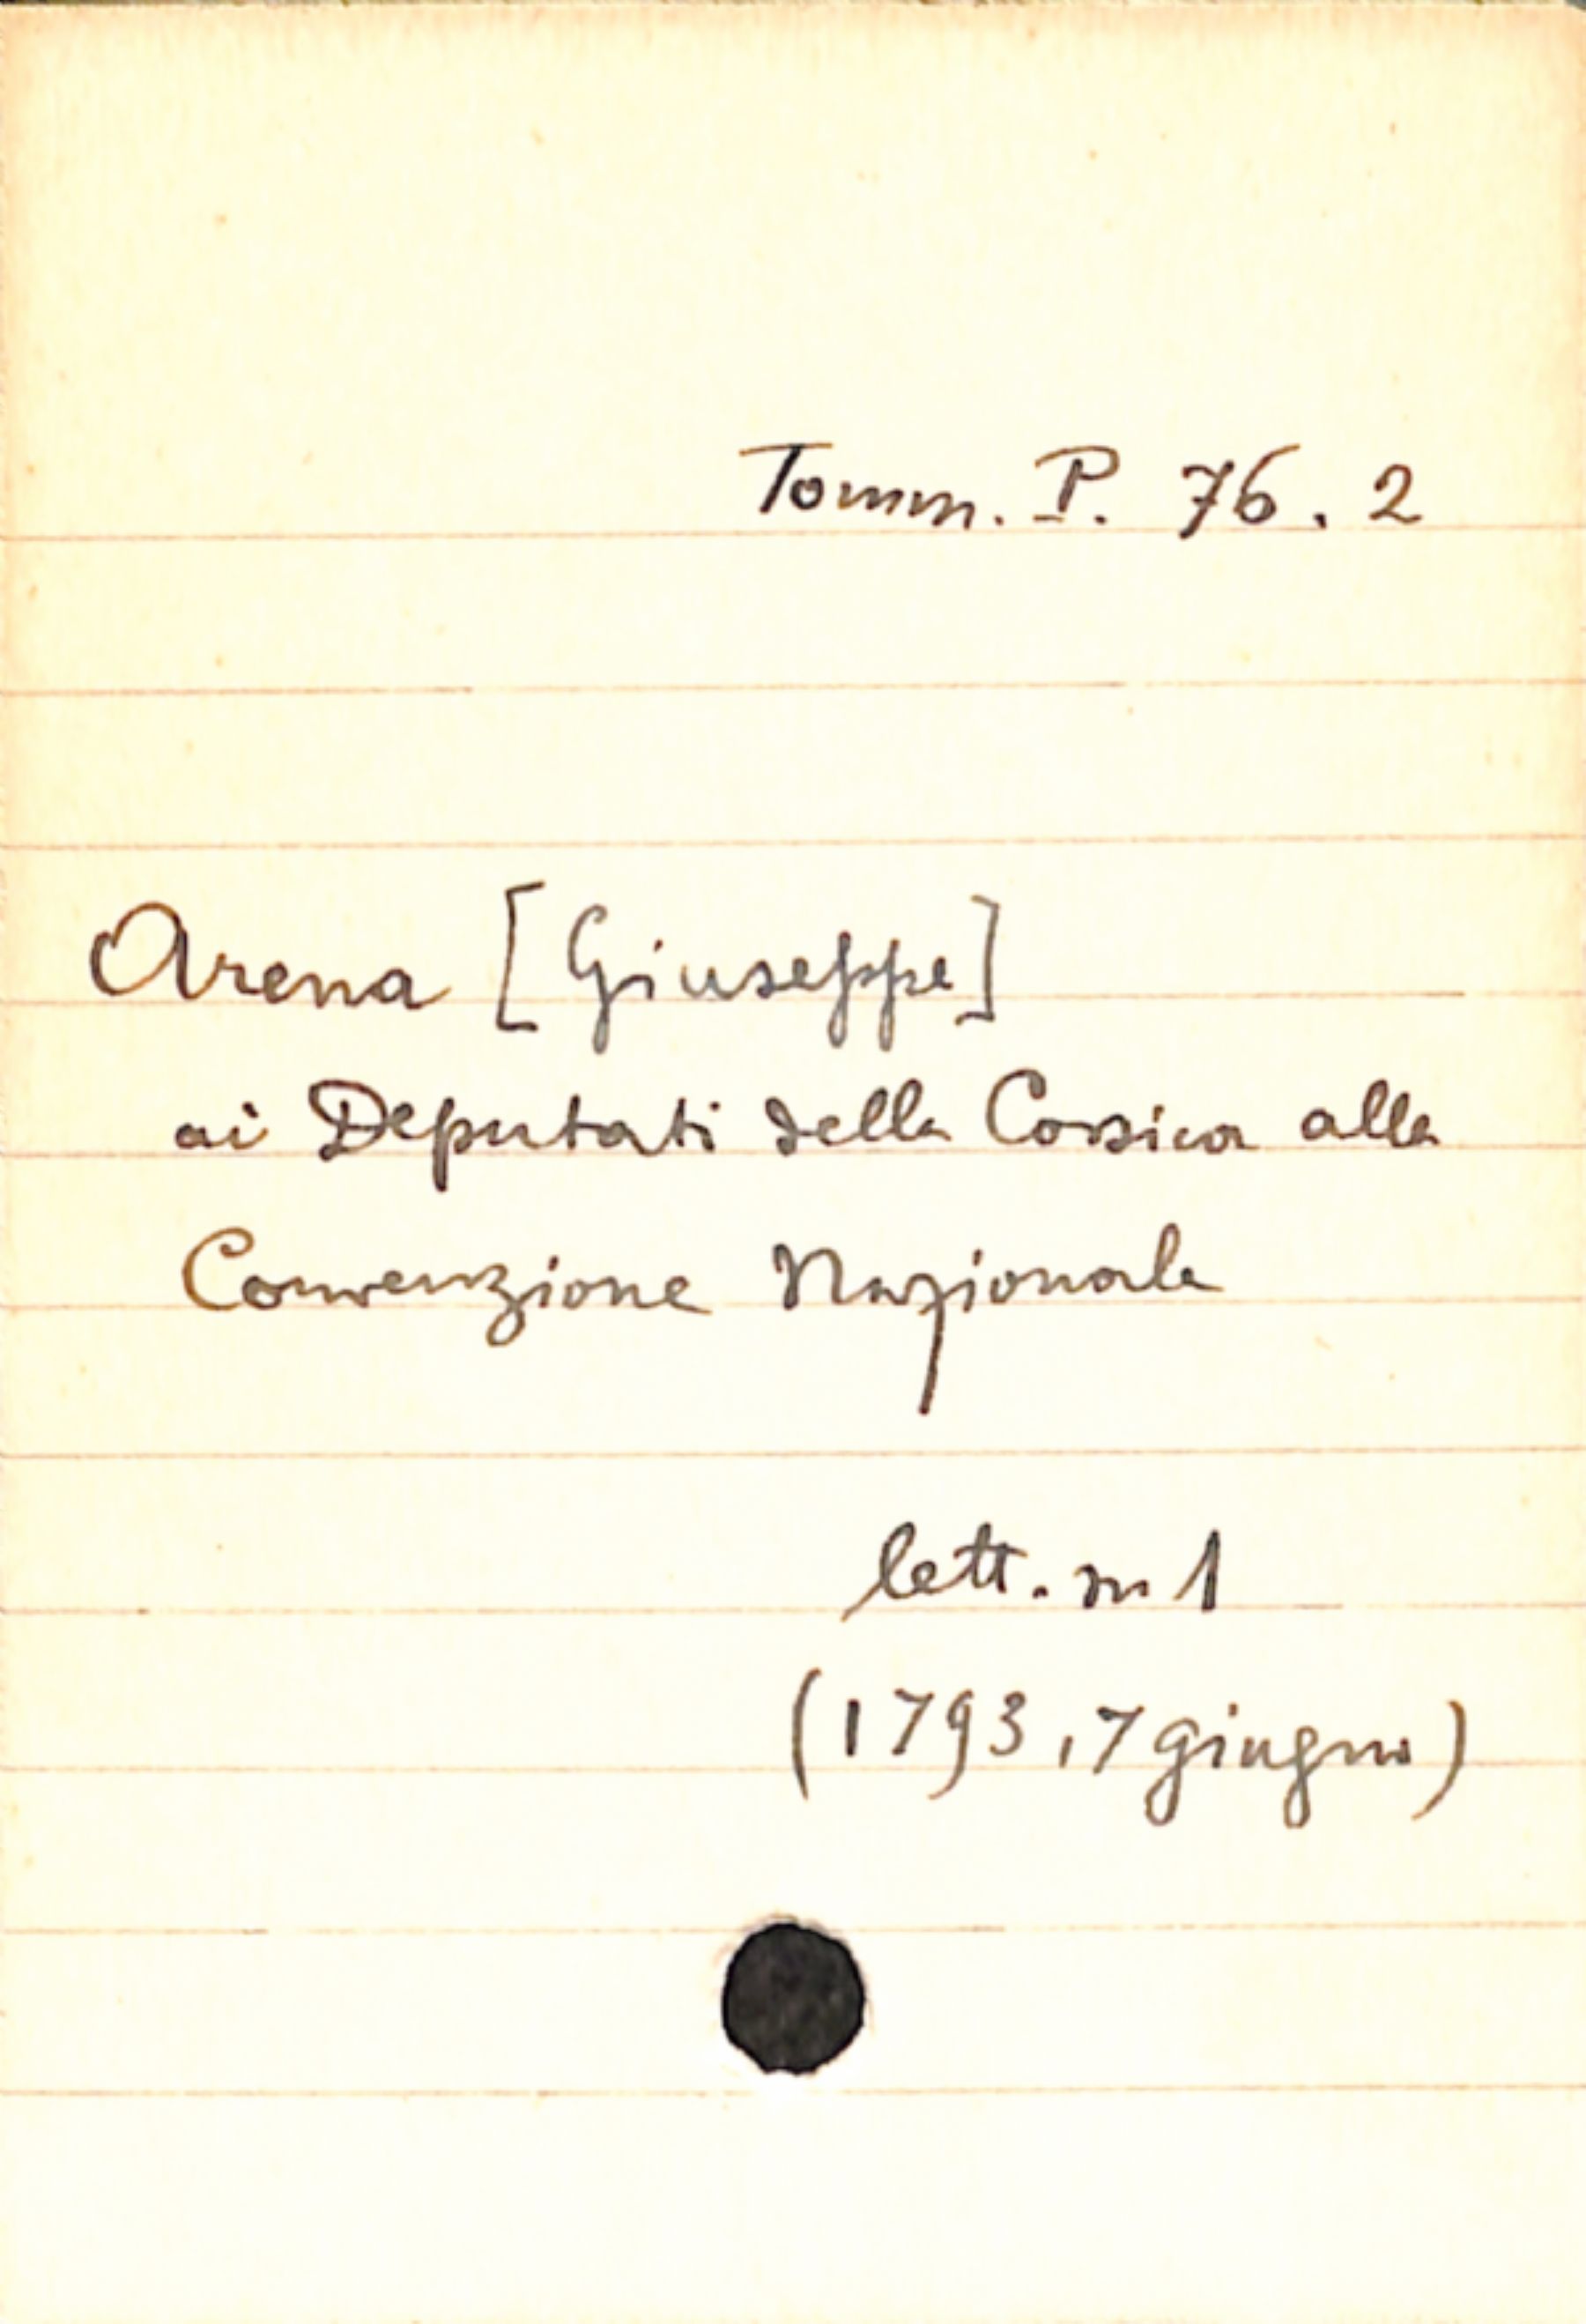 Tomm. P. 76. 2
Arena [Giuseppe]
ai Deputati della Corsica alla
Convenzione Nazionale
lett. n. 1
(1793, 7 giugno)